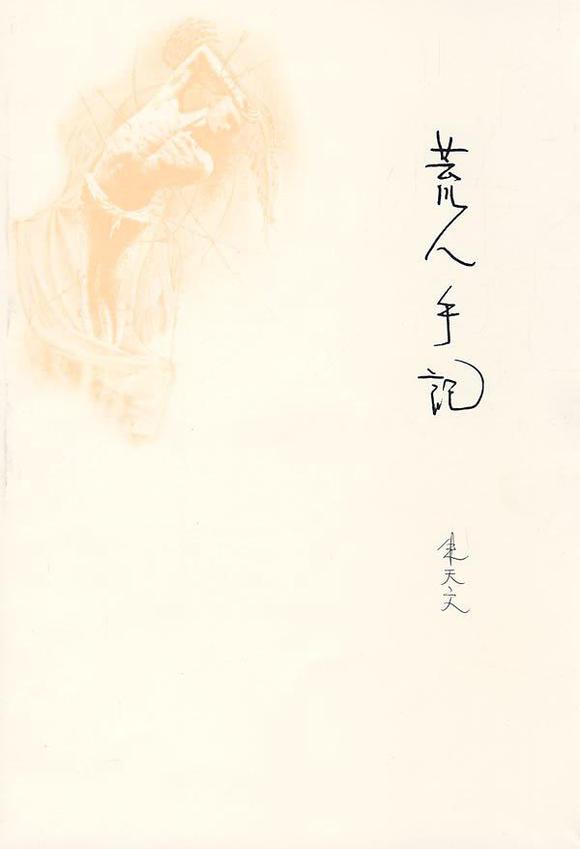 荒人手記
朱天文